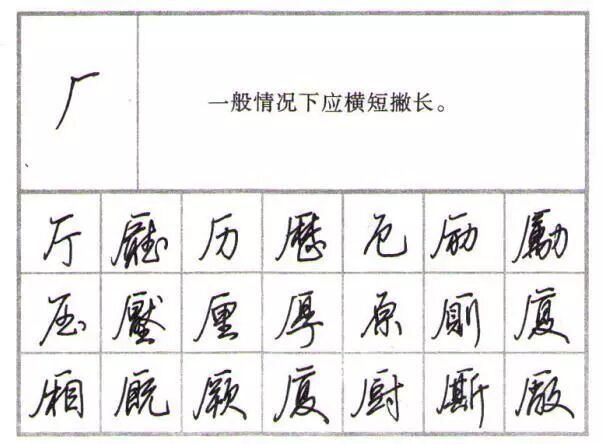 厂
一般情况下应横短撇长。
厅 历 歷 厄 励 勵
压 壓 厘 厚 原 厠
厢 厩 厦 厨 厮 厰